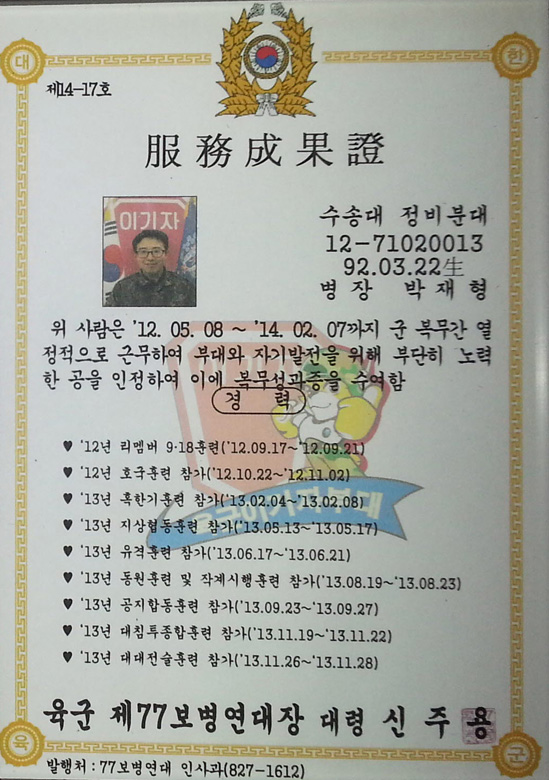 대 한
제14-17호
服務成果證
이기자
수송대 정비분대
12-71020013
92.03.22生
병 장 박 재 형
위 사람은 '12. 05. 08 ~ '14. 02. 07까지 군 복무간 열
정적으로 근무하여 부대와 자기발전을 위해 부단히 노력
한 공을 인정하여 이에 복무성과증을 수여함
경 력
♥ '12년 리멤버 9·18훈련('12.09.17~'12.09.21)
♥ '12년 호국훈련 참가('12.10.22~'12.11.02)
♥ '13년 혹한기훈련 참가('13.02.04~'13.02.08)
♥ '13년 지상협동훈련 참가('13.05.13~'13.05.17)
♥ '13년 유격훈련 참가('13.06.17~'13.06.21)
♥ '13년 동원훈련 및 작계시행훈련 참가('13.08.19~'13.08.23)
♥ '13년 공지합동훈련 참가('13.09.23~'13.09.27)
♥ '13년 대침투종합훈련 참가('13.11.19~'13.11.22)
♥ '13년 대대전술훈련 참가('13.11.26~'13.11.28)
육군 제77보병연대장 대령 신 주 용
육 군
발행처 : 77보병연대 인사과(827-1612)